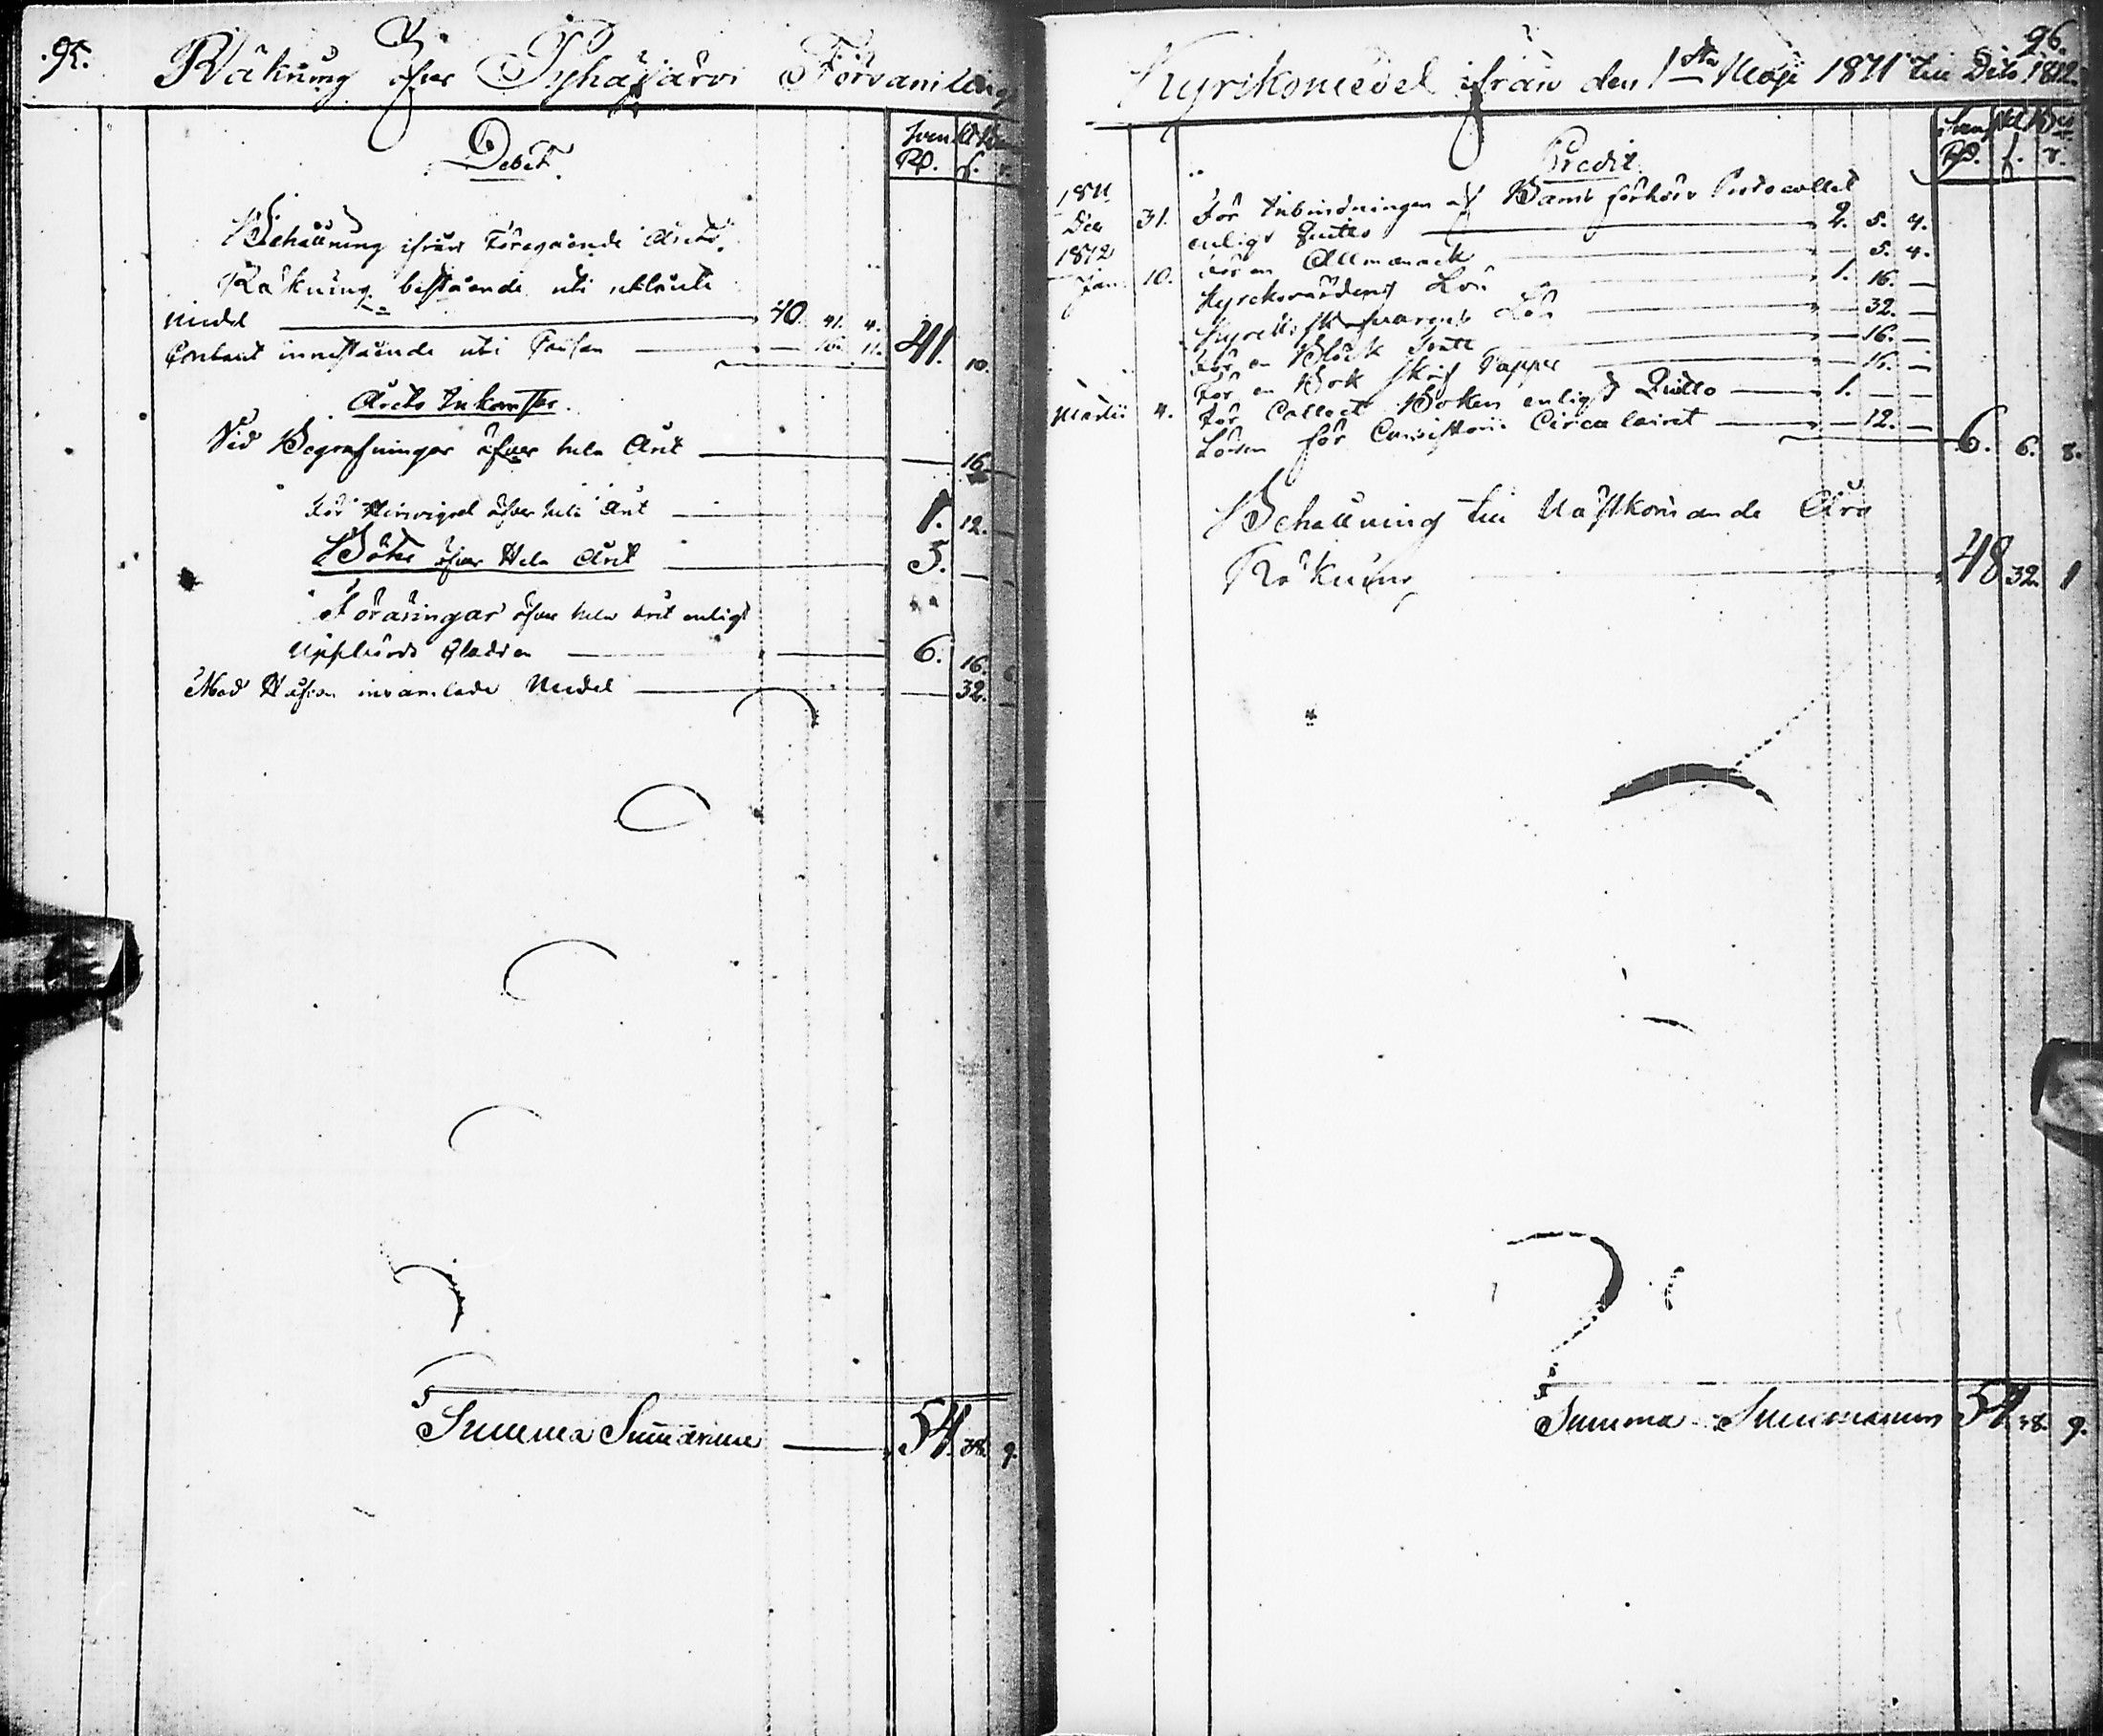 95.
Räkning öfver Pyhäjärvi Församlings
Debet.
Rd. s. r.
Behållning ifrån Föregående Årets
Räkning bestående uti utlånte
Medel 40. 41. 4.
Contant innestående uti Cassan 16. 11. 41. 10.
Årets Inkomster.
Vid Begrafningar öfver hela Året 16.
För Håfvigel öfver hela Året 1. 12.
Böter öfver Hela Året 5.
Föräringar öfver hela året enligt
Uppbörds 6. 16.
Med Håfven insamlade Medel 32.
Summa Summarum 54. 38. 9.
96.
Kyrkomedel ifrån den 1sta Maji 1811 till Dito 1812.
Credit.
Rd. s. r.
1811
Dec 31. För Inbindningen af Barns förhörs Protocollet
enligt Quitto 2. 5. 4.
1812
Jan. 10. För en Allmanack 5. 4.
Kyrckovärdens Lön 1. 16.
Kyrckoskrifvarens Lön 32.
För en Bläck 16.
För en Bok skrif Papper 16.
Martii 4. För Collect Boken enligt Quitto 1.
Lösen för Consistorii Circulairet 12. 6. 6. 8.
Behållning till Nästkommande Års
Räkning 48 32. 1
Summa Summarum 54. 38. 9.